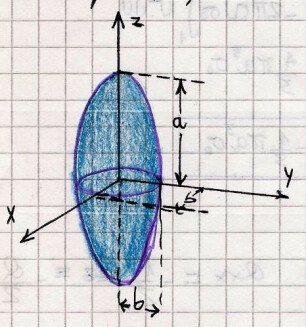 z
a
Y
b
X
b